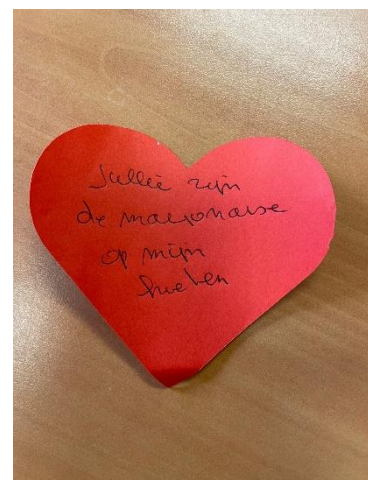 Jullie zijn
de mayonaise
op mijn
frieten